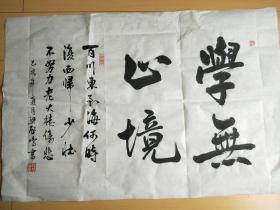 學無
止境
百川東到海何時
復西歸 少壯
不努力老大徒傷悲